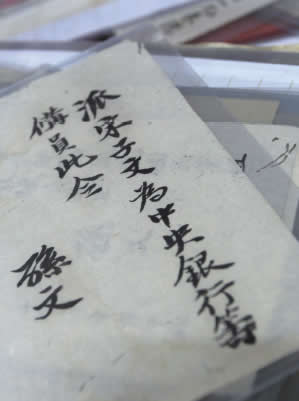 派宋子文為中央銀行籌
備員此令
孫文